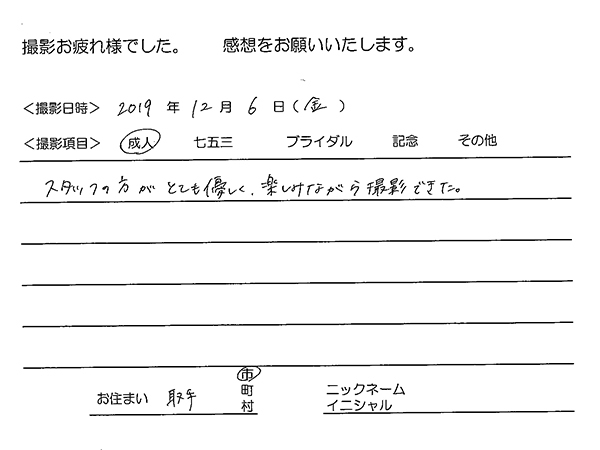 撮影お疲れ様でした。 感想をお願いいたします。
＜撮影日時＞ 2019 年 12 月 6 日 (金)
＜撮影項目＞ 成人 七五三 ブライダル 記念 その他
スタッフの方がとても優しく、楽しみながら撮影できた。
お住まい 取手 市 町 村 ニックネーム イニシャル